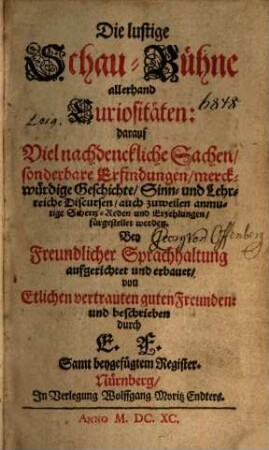 Die lustige
Schau-Bühne
allerhand
Curiositäten:
darauf
Viel nachdenckliche Sachen/
sonderbare Erfindungen/ merck-
würdige Geschichte/ Sinn- und Lehr-
reiche Discursen/ auch zuweilen anmu-
tige Schertz-Reden und Erzehlungen/
fürgestellet werden.
Bey
Freundlicher Sprachhaltung
aufgerichtet und erbauet/
von
Etlichen vertrauten guten Freunden:
und beschrieben
durch
E. F.
Samt beygefügtem Register.
Nürnberg/
In Verlegung Wolffgang Moritz Endters.
ANNO M. DC. XC.